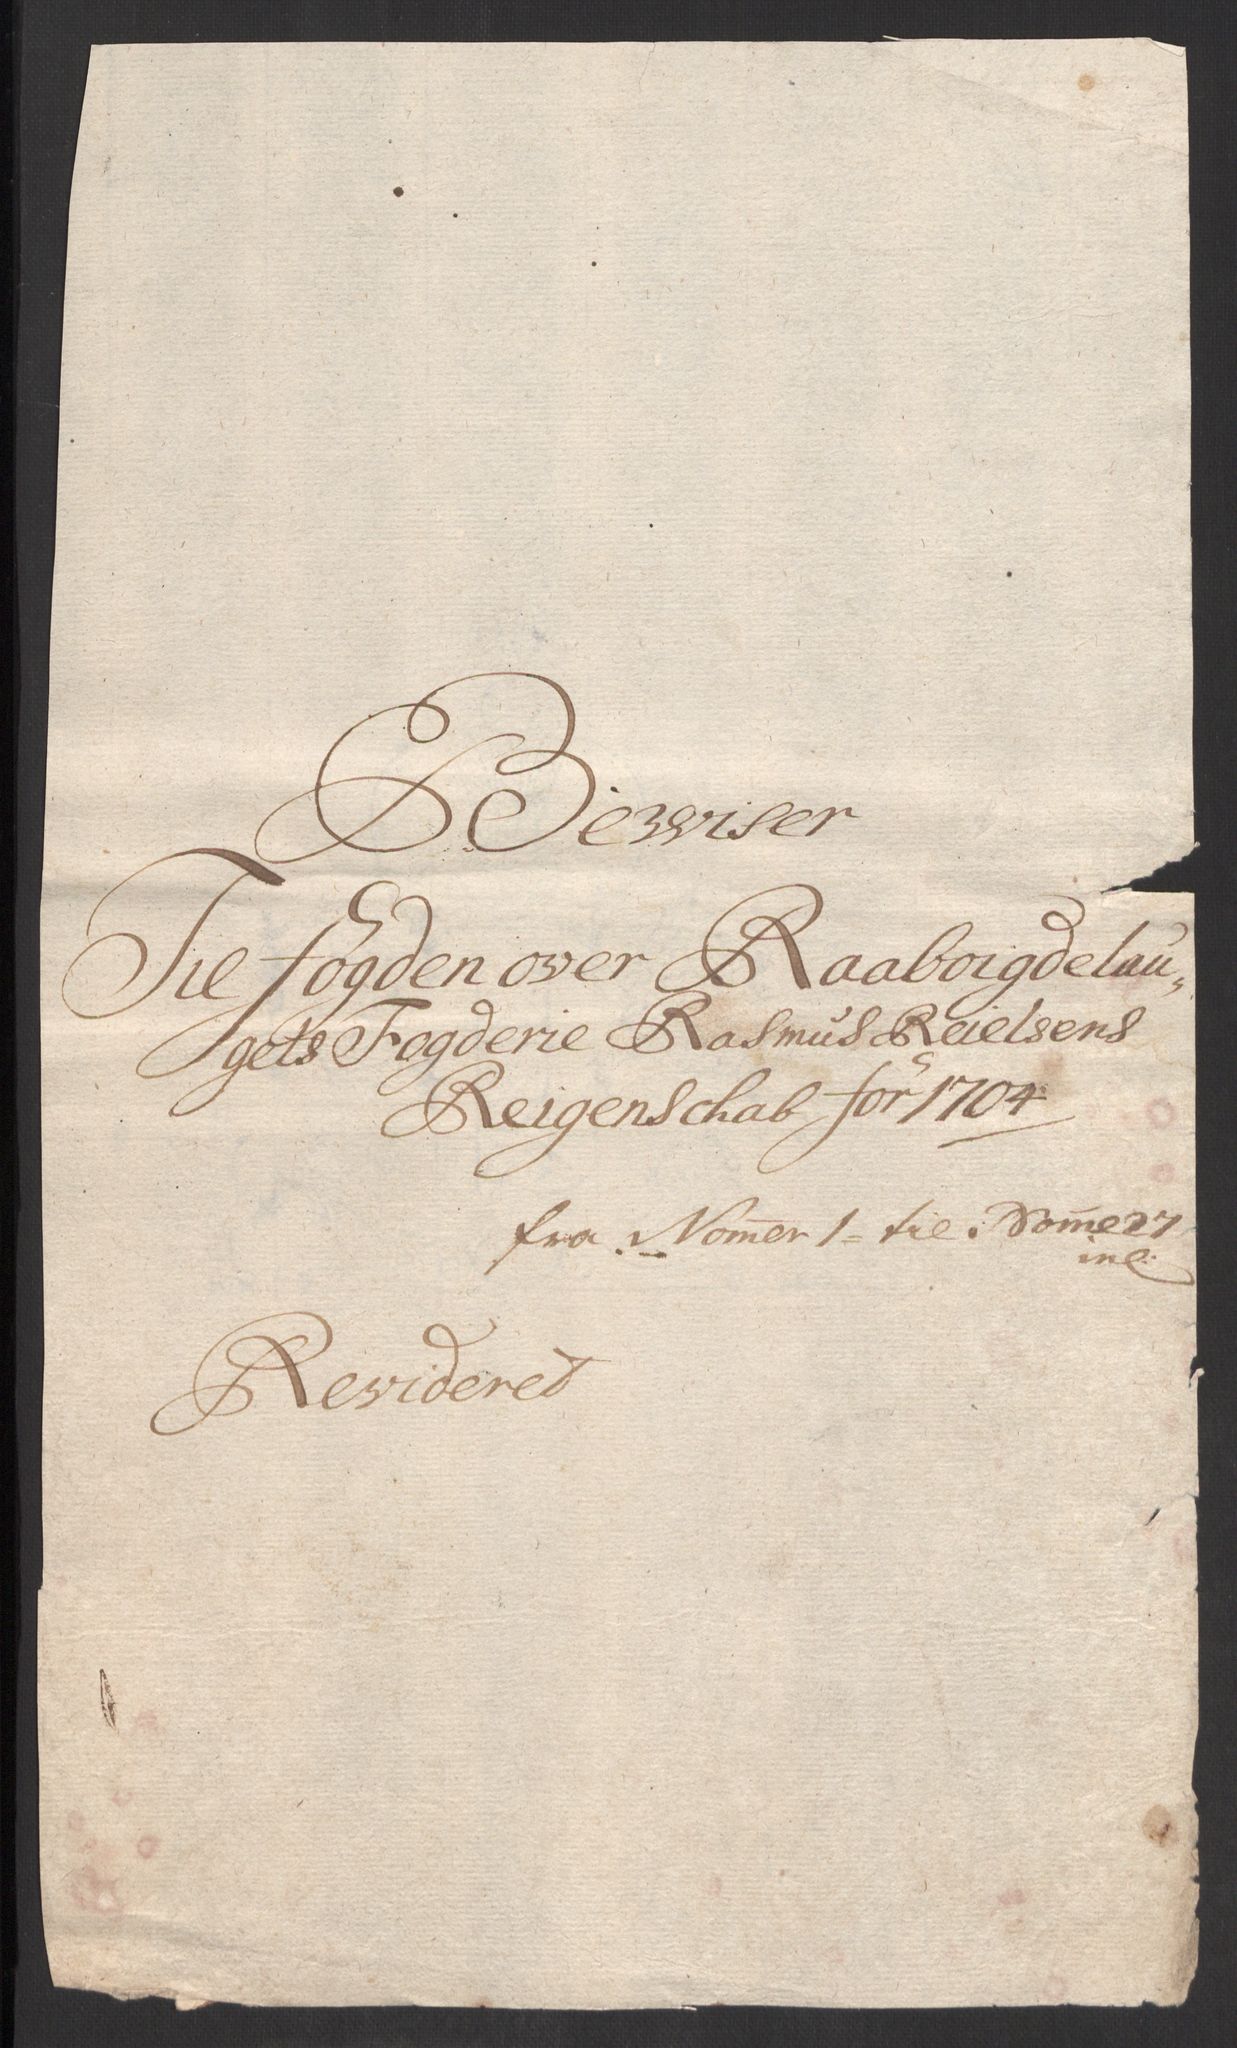 Bewiser
Til fogden over Raaboigdelau-
gets Fogderie Rasmus Reielsens
Reigenschab for 1704
fra Nom̄er 1 = til Nom̄e 27
incl:
Revideret